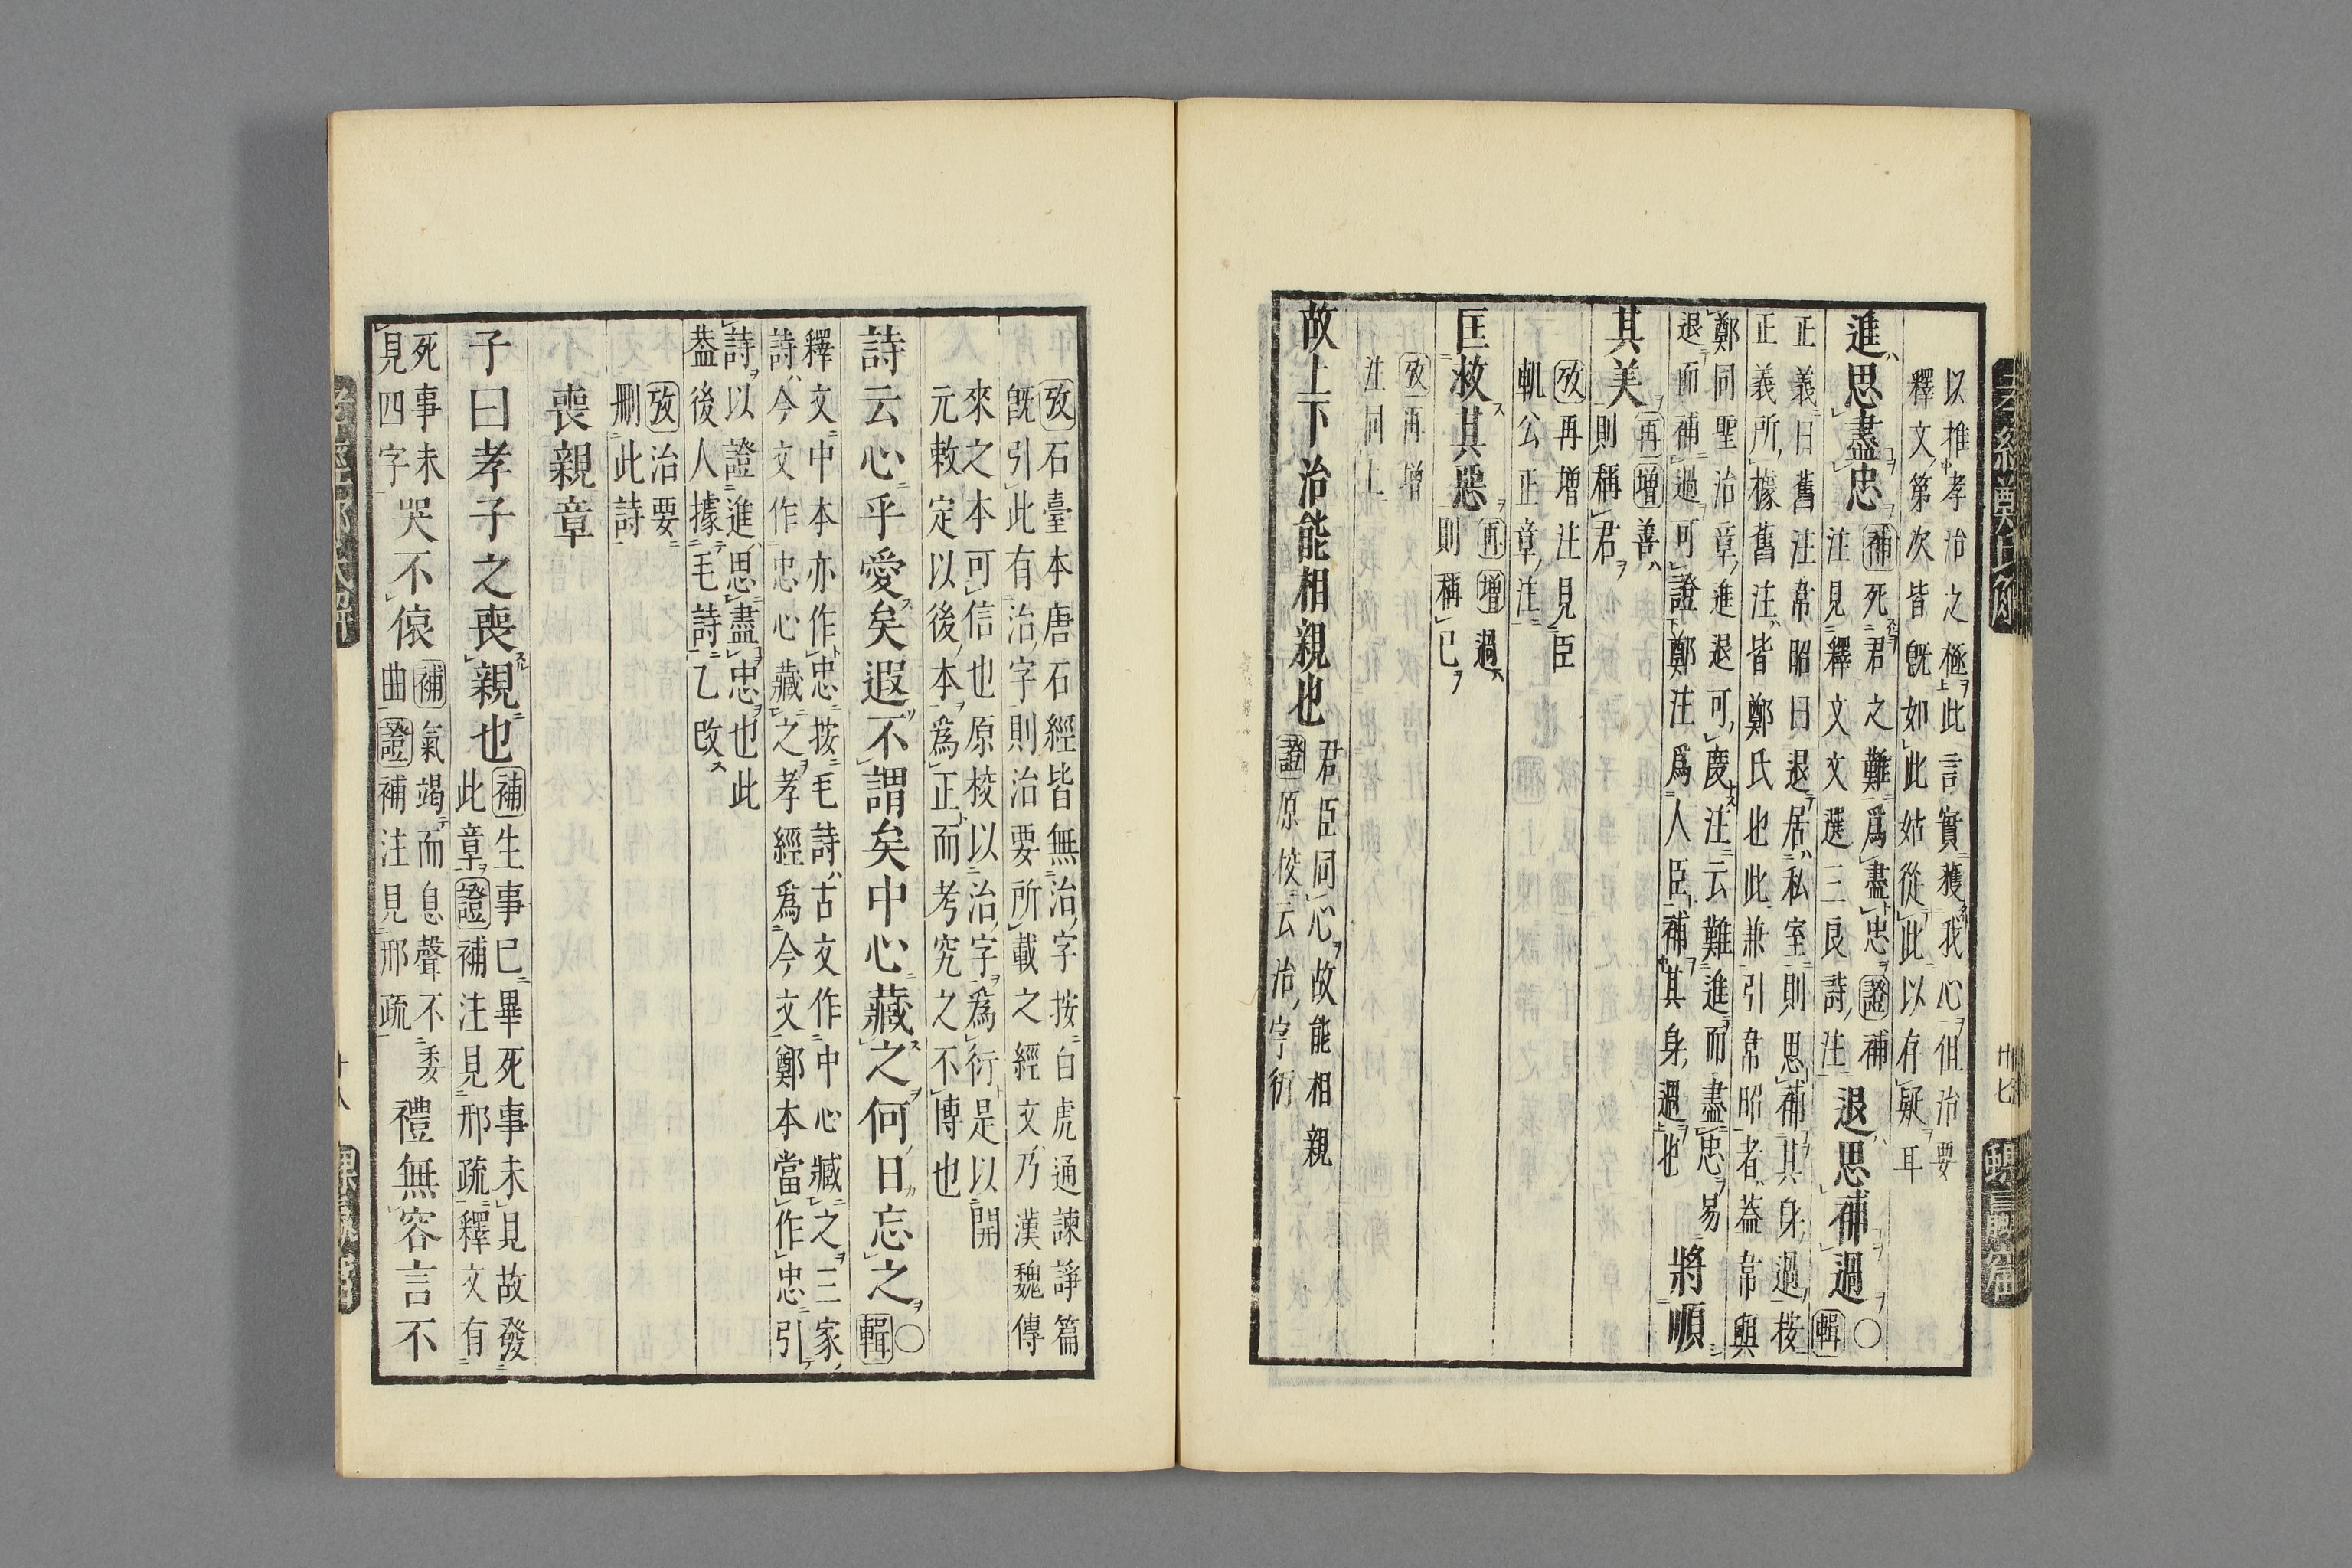 以推孝治之極此言實獲我心但治要
釋文第次皆既如此姑從此以存疑耳
進思盡忠
補死君之難爲盡忠證補
注見釋文文選三良詩注
退思補過
○
輯
正義曰舊注韋昭曰退居私室則思補其身過按
正義所據舊注皆鄭氏也此兼引韋昭者葢韋與
鄭同聖治章進退可度注云難進而盡忠易
退而補過可證鄭注爲人臣補其身過也
將順
其美
再增善
則稱君
攷再增注見臣
軌公正章注
匡救其惡
再增過
則稱已
攷再增
注同上
故上下治能相親也
君臣同心故能相親
證原校云治字衍
攷石臺本唐石經皆無治字按白虎通諫諍篇
旣引此有治字則治要所載之經文乃漢魏傳
來之本可信也原校以治字爲衍是以開
元敕定以後本爲正而考究之不傳也
詩云心乎愛矣遐不謂矣中心藏之何日忘之
○
輯
釋文中本亦作忠按毛詩古文作中心臧之三家
詩今文作忠心藏之孝經爲今文鄭本當作忠引
詩以證進思盡忠也此
葢後人據毛詩乙改
攷治要
刪此詩
喪親章
子曰孝子之喪親也
補生事已畢死事未見故發
此章證補注見邢疏釋文有
死事未
見四字
哭不偯
補氣竭而息聲不委
曲證補注見邢疏
禮無容言不
孝經鄭氏解
廿七
十八